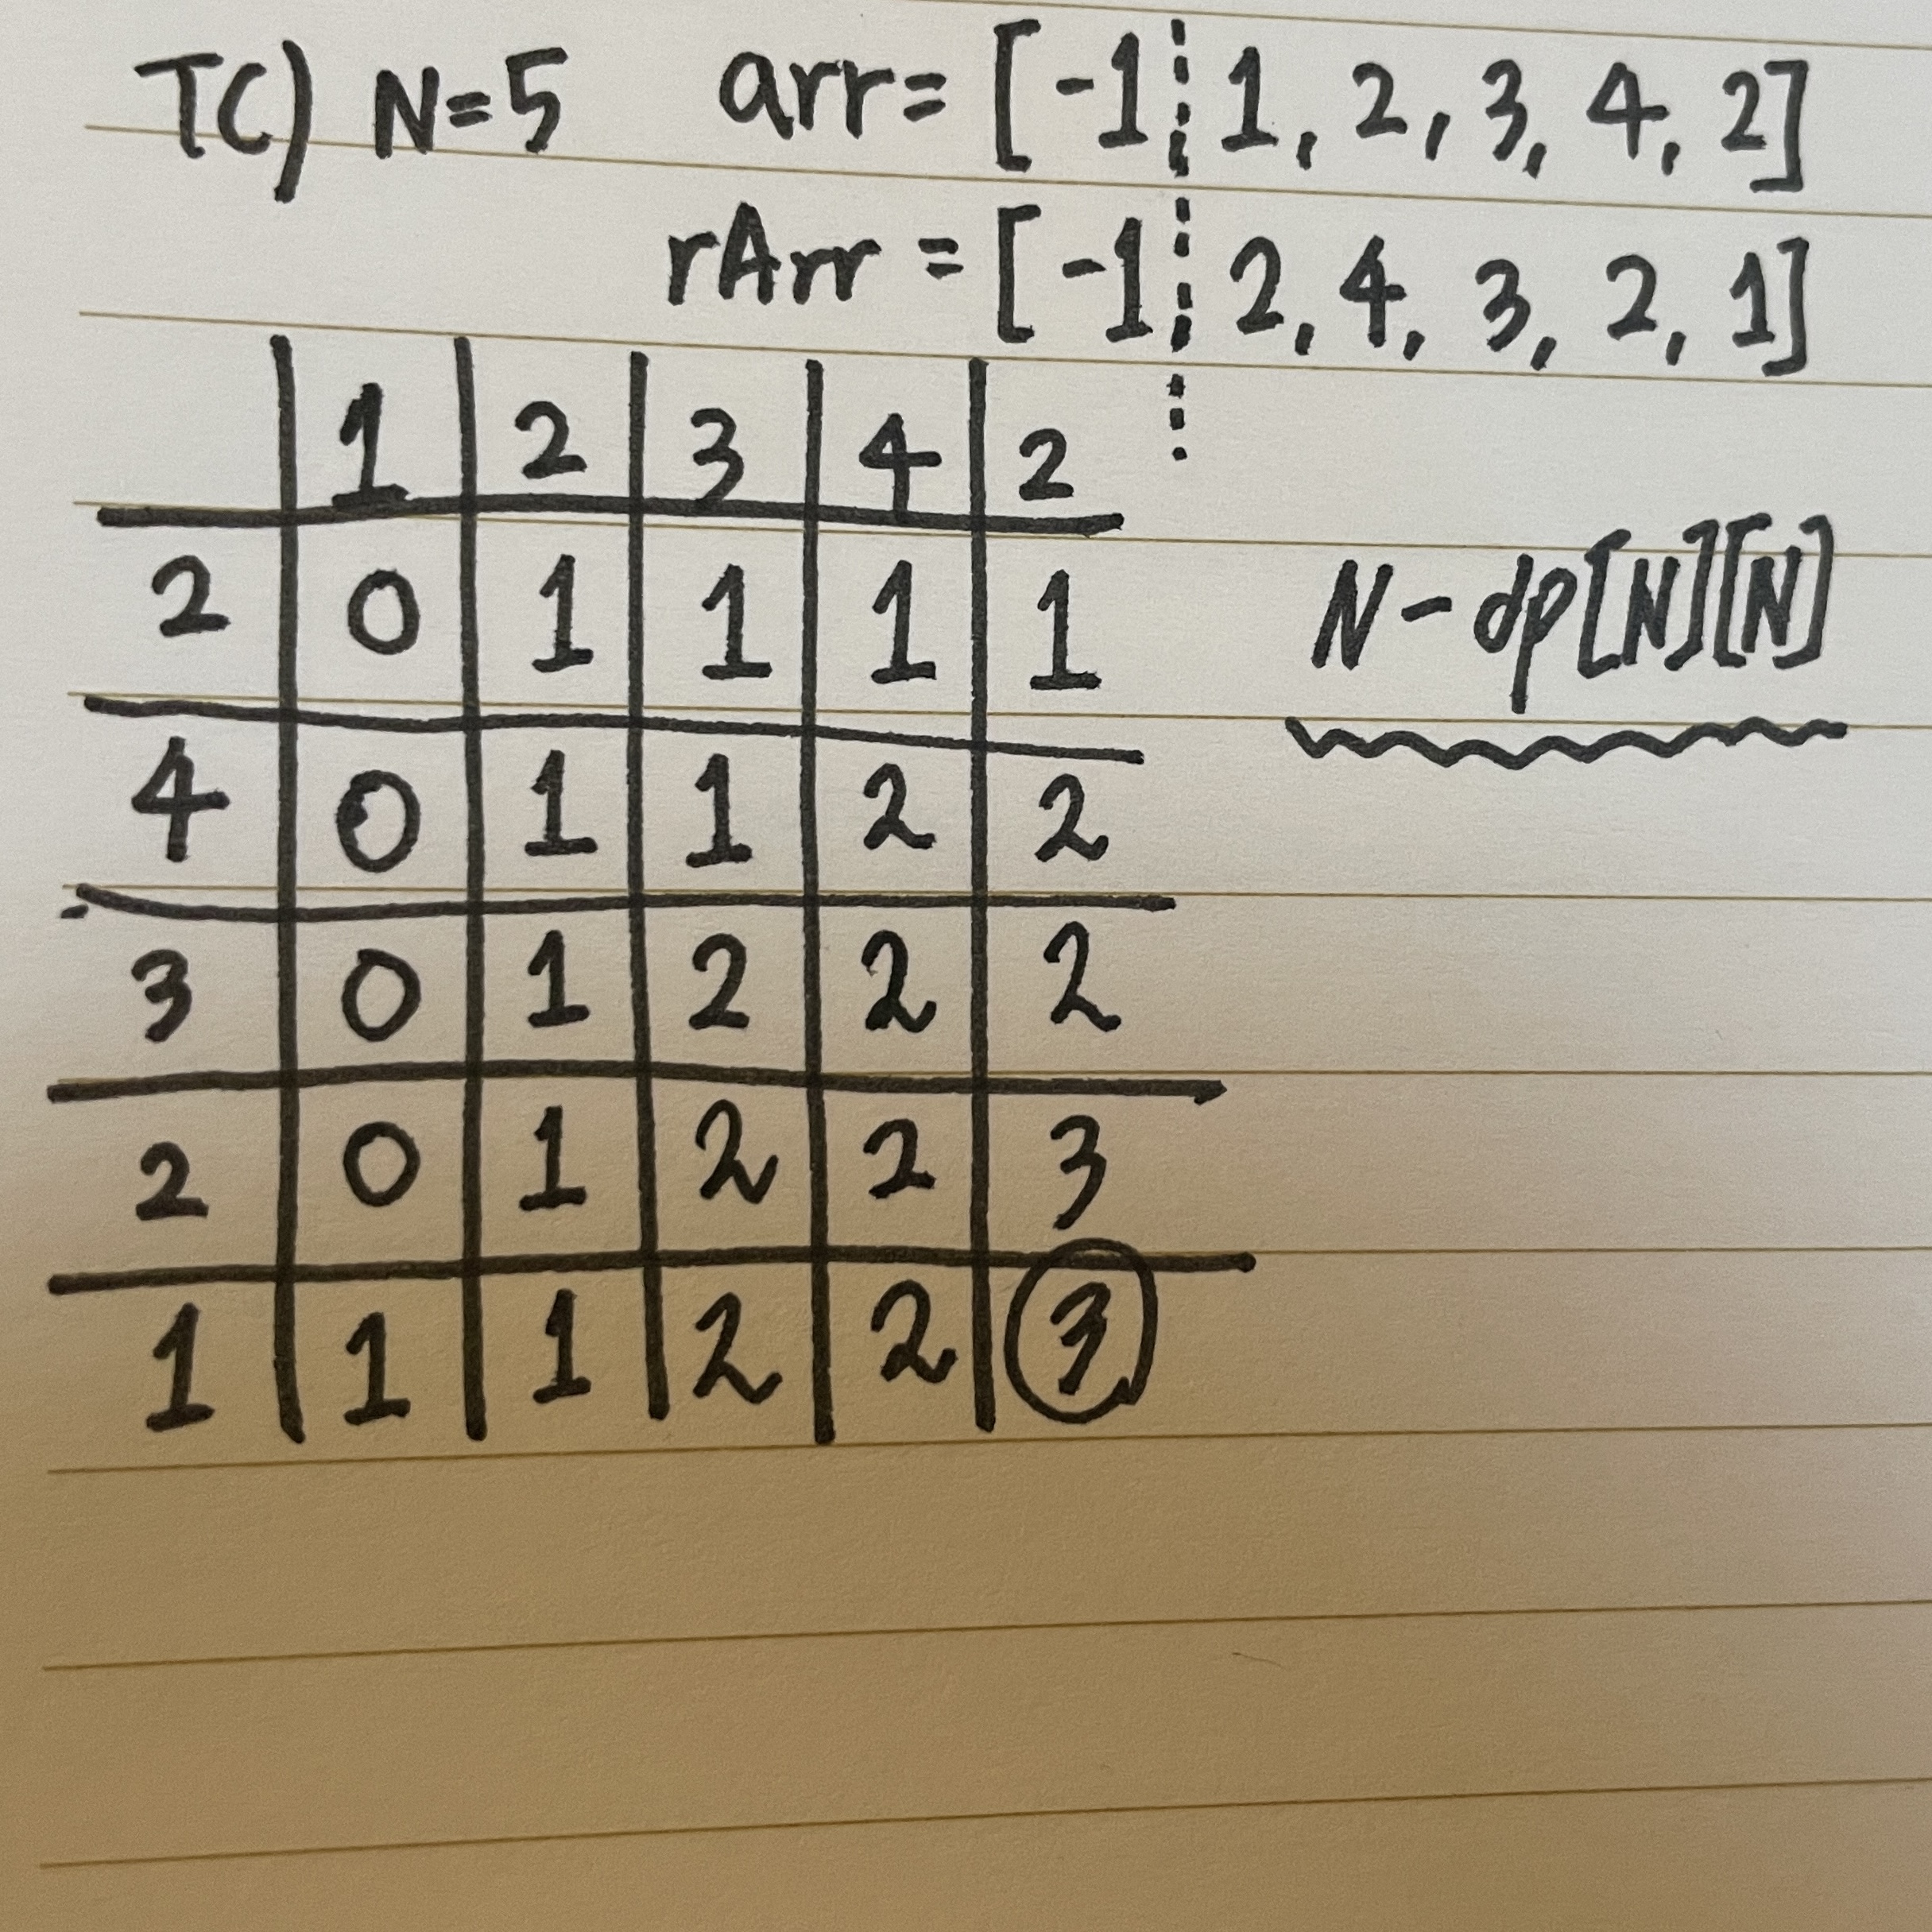 TC) N=5 arr= [-1, 1, 2, 3, 4, 2]
rArr = [-1, 2, 4, 3, 2, 1]
1 2 3 4 2
2 0 1 1 1 1 N-dp[N][N]
4 0 1 1 2 2
3 0 1 2 2 2
2 0 1 2 2 3
1 1 1 2 2 3